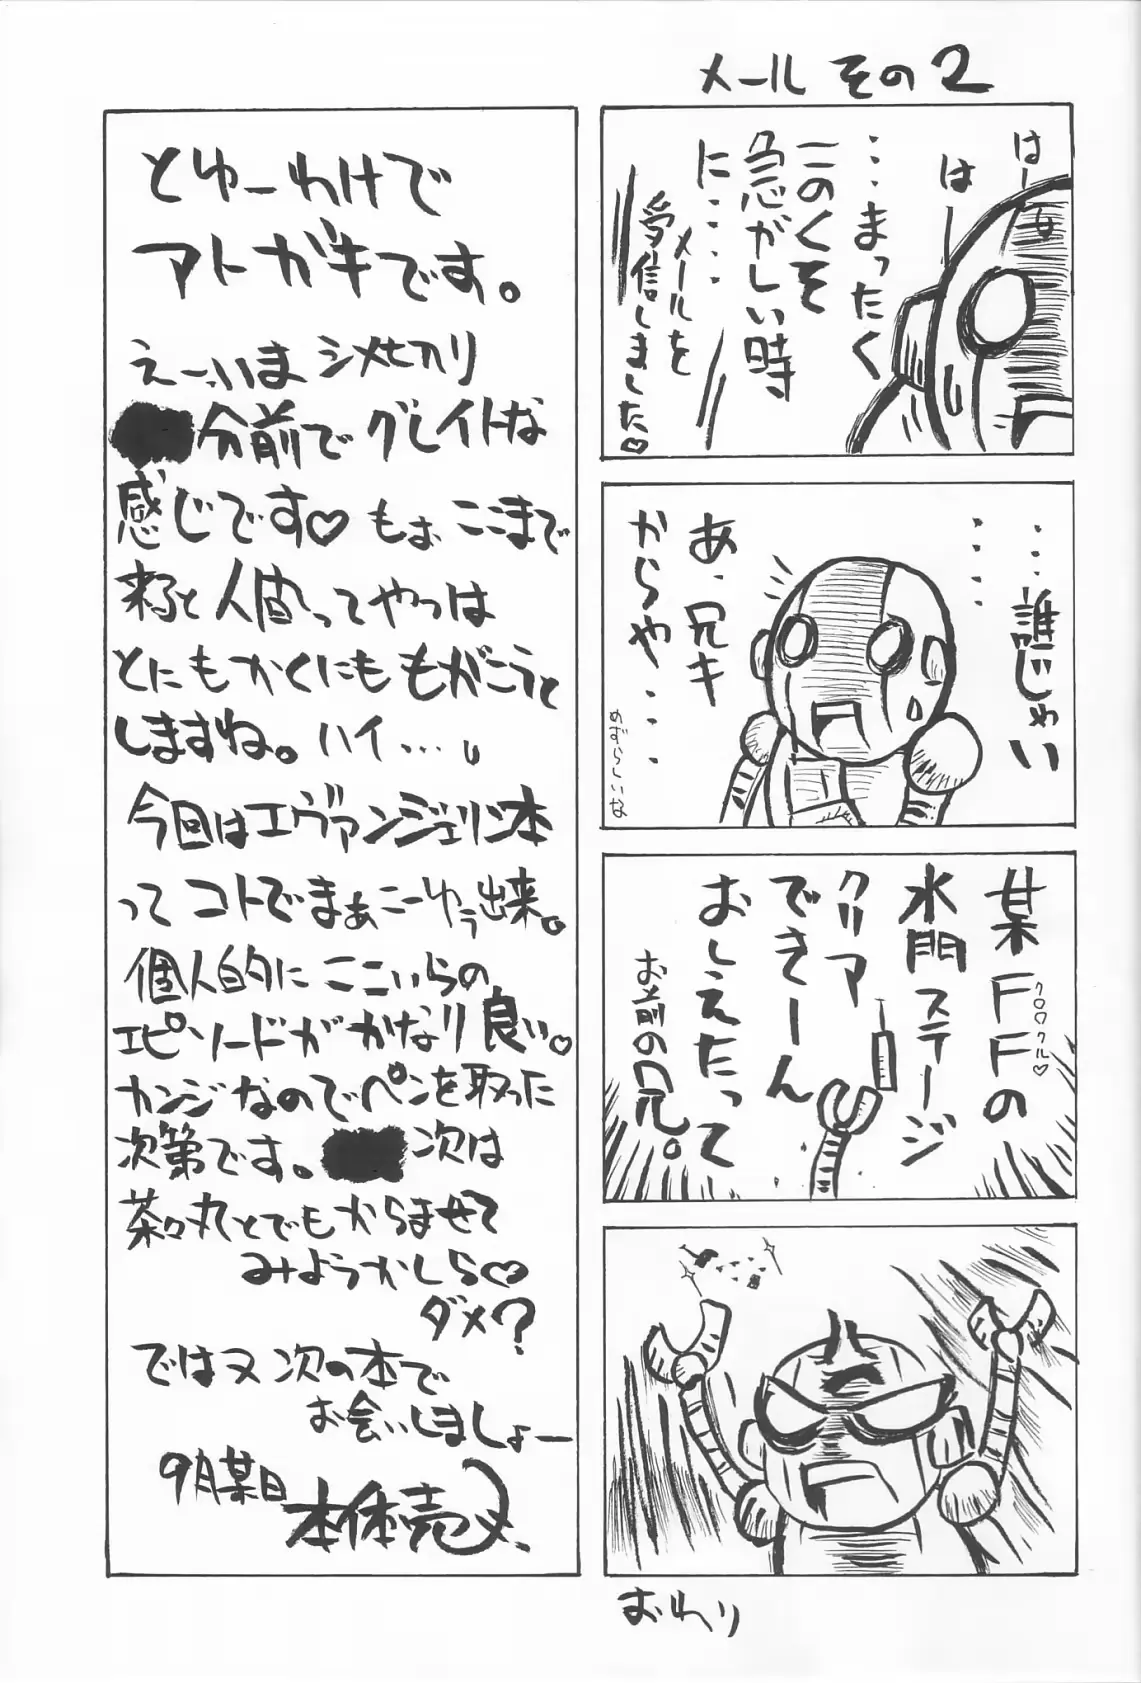 メール その2
はー
は
…まったく
このくそ
急がしい時
に……
メールを
受信しました♡
…誰じゃい
……
あ、兄キ
からや…
めずらしいな
某FFの
クロワクル♡
水門ステージ
クリア
できーん
おしえたって
お前の兄。
おわり
とゆーわけで
アトガキです。
えー、いま シメ切り
分前で グレイトな
感じです♡ もぉ ここまで
来ると 人間ってやつは
とにもかくにも もがこうと
しますね。ハイ…。
今回はエヴァンジェリン本
って コトでまぁ こーゆう出来。
個人的に ここいらの
エピソードが かなり 良い♡
カンジなのでペンを取った
次第です。 次は
茶々丸とでもからませて
みようかしら♡
ダメ?
ではヌ 次の本で
お会いしましょー
9月某日
本体売